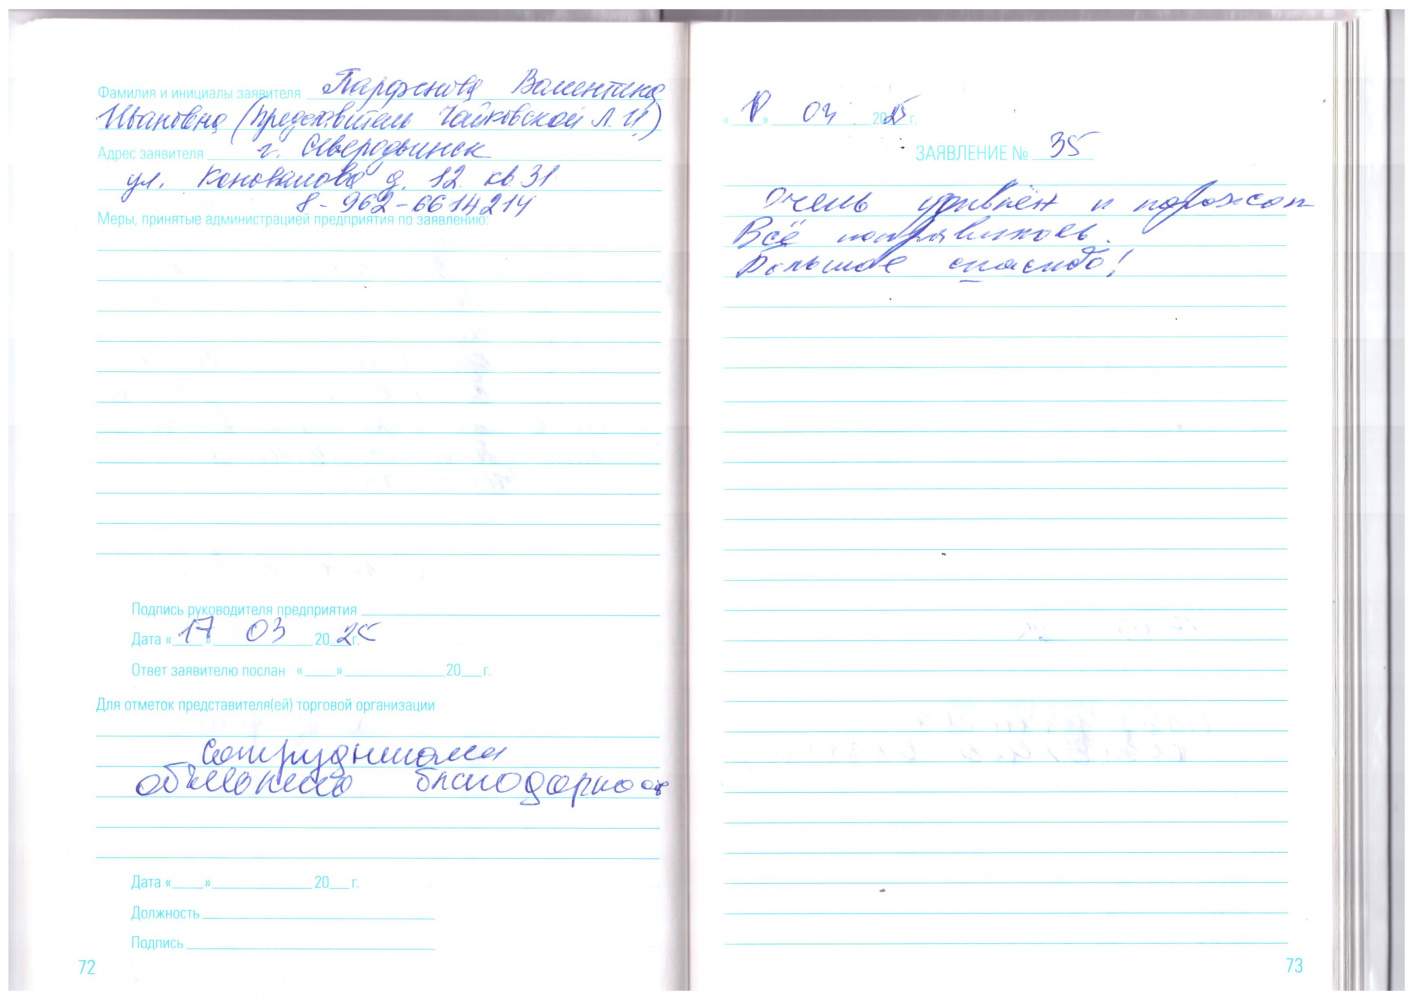 Фамилия и инициалы заявителя Парфенова Валентина
Ивановна (представитель Чайковской Л.И)
Адрес заявителя г. Северодвинск
ул. Коновалова д. 12 кв 31
8-962-6614214
Меры, принятые администрацией предприятия по заявлению:
Подпись руководителя предприятия
Дата «17» 03 2025 г.
Ответ заявителю послан «___» 20__ г.
Для отметок представителя(ей) торговой организации
Сотрудникам
объявлена благодарность
Дата «___» 20__ г.
Должность
Подпись
72
03 2025 г.
ЗАЯВЛЕНИЕ № 35
Очень удивлён и поражён
Всё понравилось.
Большое спасибо!
73